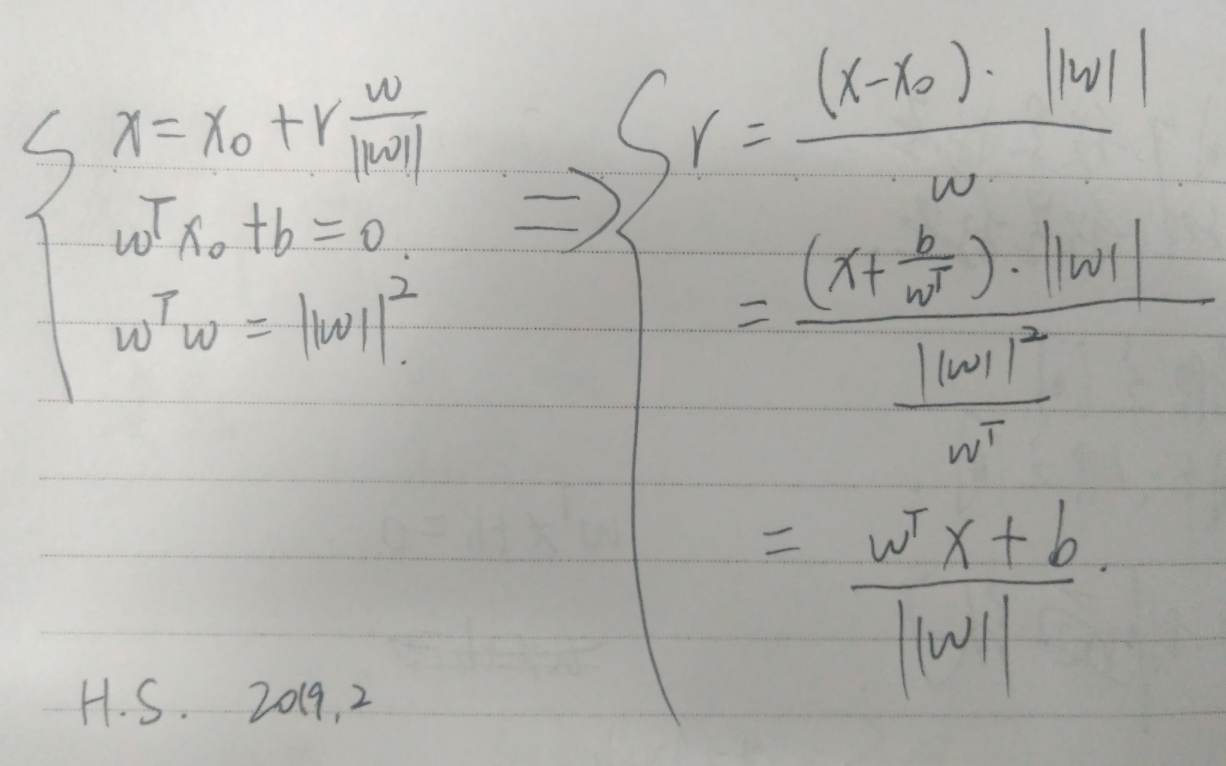 x = x₀ + r w/||w||
wᵀx₀ + b = 0.
wᵀw = ||w||².
⇒
r = (x-x₀)·||w|| / w
= (x + b/wᵀ)·||w|| / (||w||²/wᵀ)
= wᵀx + b / ||w||.
H.S. 2019,2